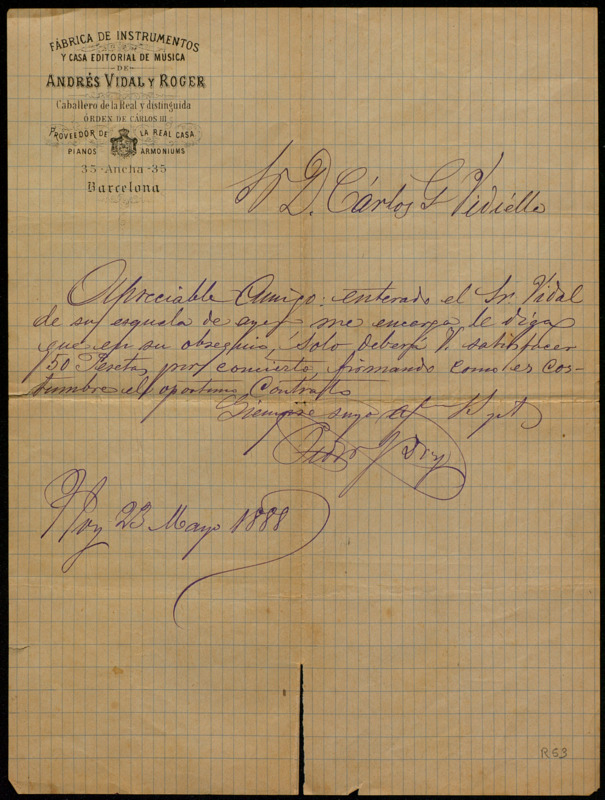 FÁBRICA DE INSTRUMENTOS
Y CASA EDITORIAL DE MÚSICA
DE
ANDRÉS VIDAL Y ROGER
Caballero de la Real y distinguida
ÓRDEN DE CÁRLOS III
PROVEEDOR DE LA REAL CASA
PIANOS ARMONIUMS
35-Ancha-35
Barcelona
Sr D. Cárlos G Vidiella
Apreciable Amigo: enterado el Sr. Vidal
de su esquela de ayer me encarga le diga
que en su obsequio, solo deberá V. satisfacer
50 Pesetas por concierto, firmando como es cos-
tumbre el oportuno Contrato
Siempre suyo
Hoy 23 Mayo 1888
R53